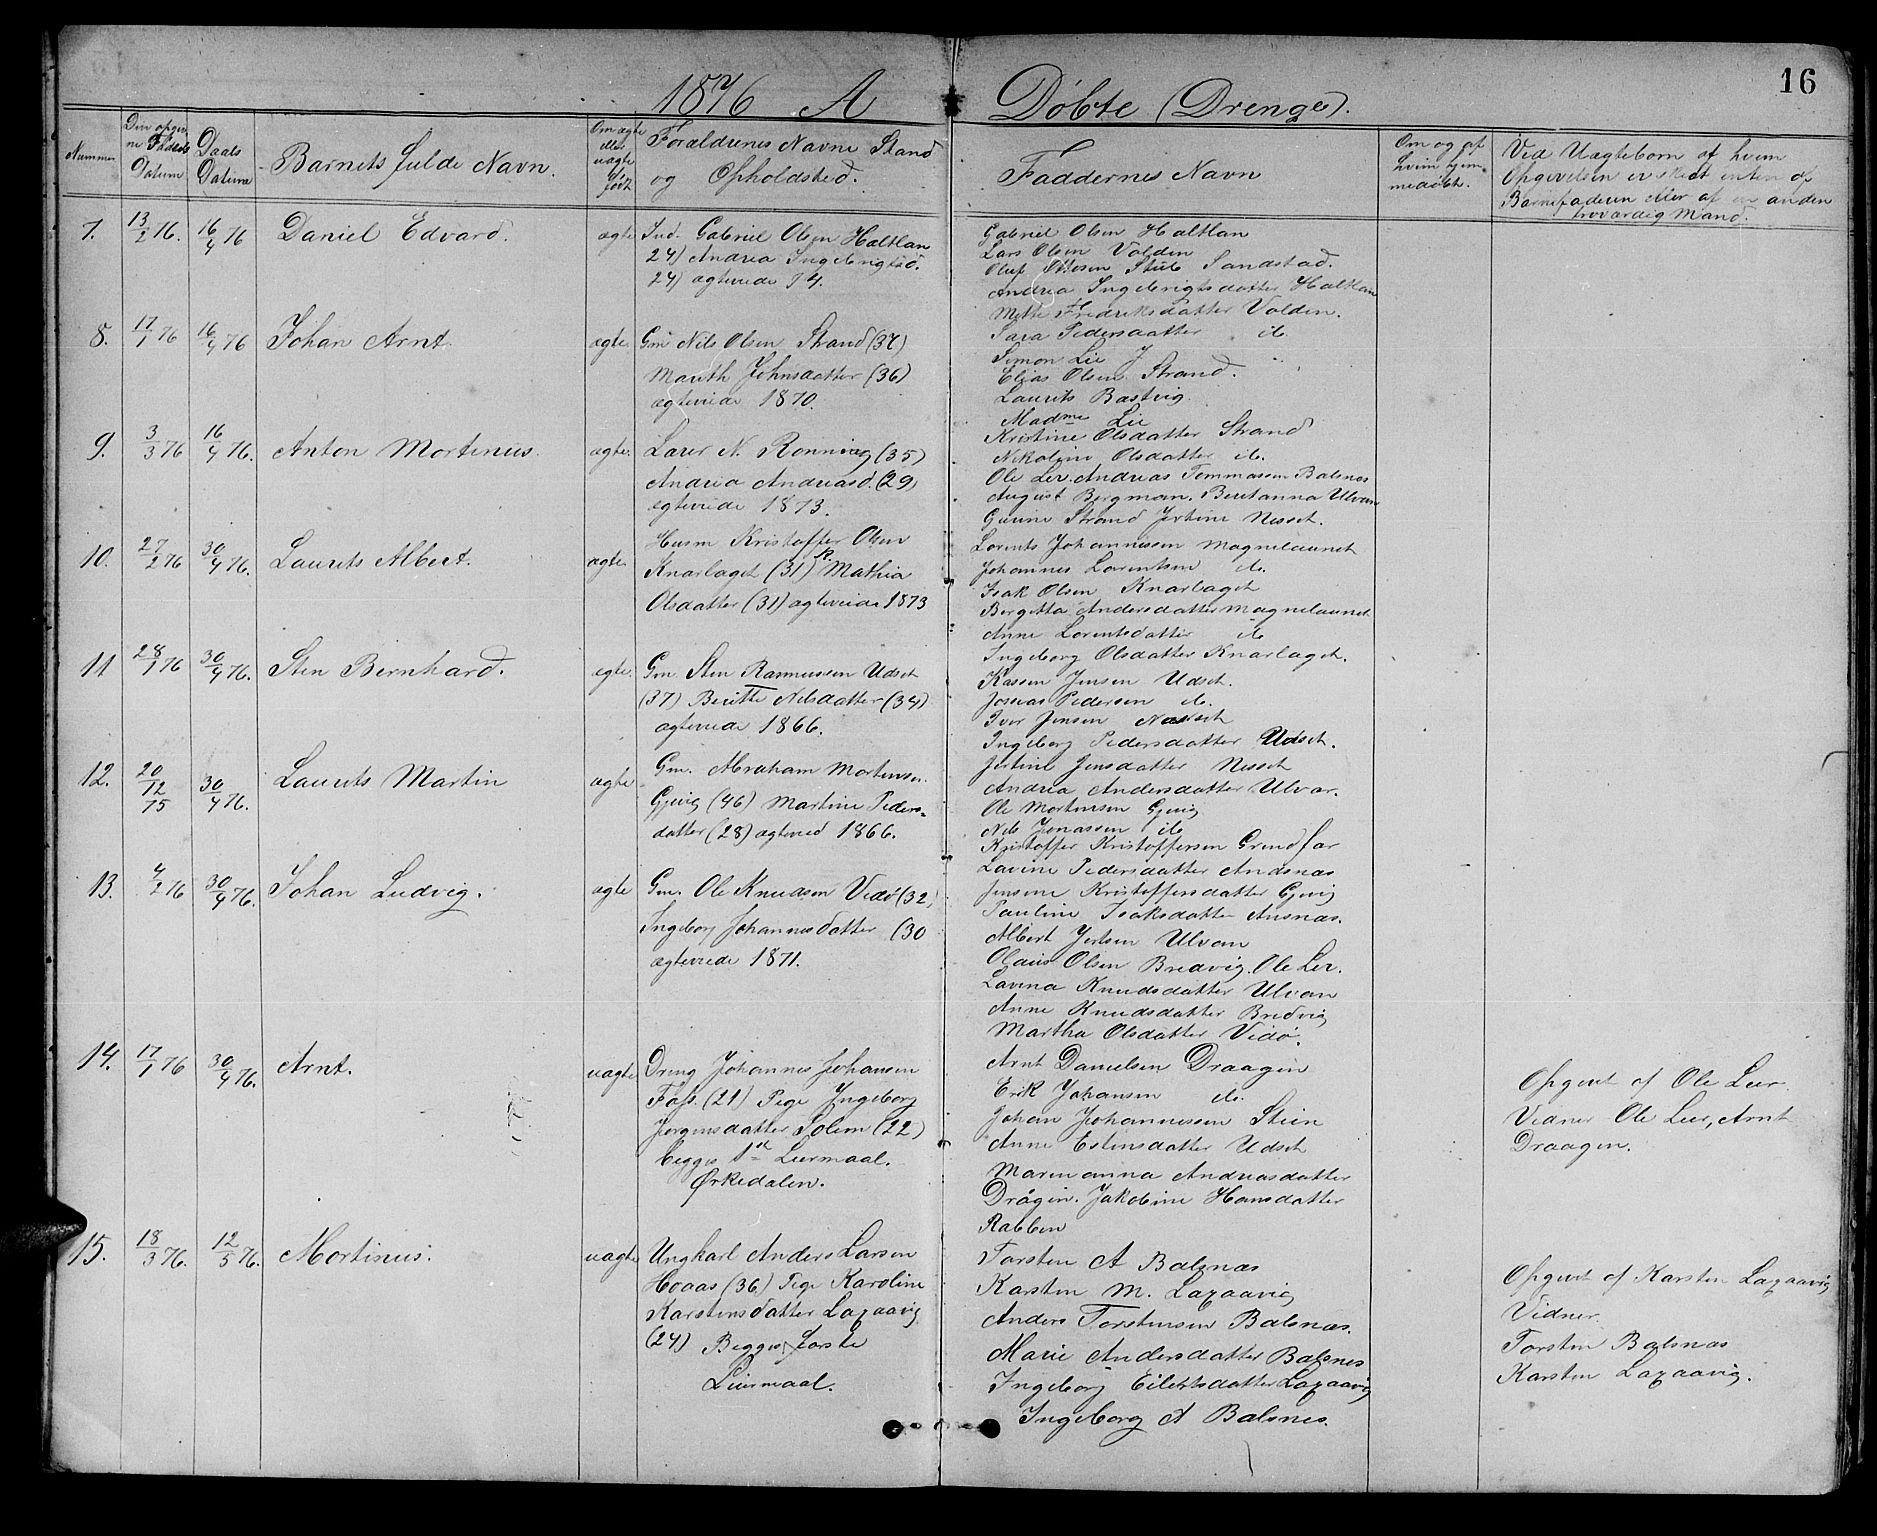 16
1876 A Döbte (Drenge).
Nummer
Den opgiv-
ne Födsels
Datum
Daabs
Datum
Barnets fulde Navn.
Om ægte
eller
uægte
född
Foraldrenes Navne Stand
og Opholdsted.
Faddernes Navn
Om og af
hvem hjem-
medöbt.
Ved Uægteborn af hvem
Opgivelsen er skedt enten af
Barnefaderen eller af en anden
troværdig Mand.
7. 13/2 76. 16/4 76 Daniel Edvard. ægte Ind. Gabriel Olsen Haltlan
24) Andrea Ingebrigtsd.
24) ægteviede 74.
Gabriel Olsen Haltlan
Lars Olsen Valden
Oluf Sandstad.
Andrea Ingebrigtsdatter Haltlan
Mette Fredriksdatter Valden.
Sara Pedersdatter do
8. 17/1 76 16/4 76 Johan Arnt. ægte. Gm Nils Olsen Strand (37)
Marith Johnsdatter (36)
ægteviede 1870.
Simon Lie
Elias Olsen Strand.
Laurits Bastvig
Madme Lie
Kristine Olsdatter Strand
Nikoline Olsdatter do.
9. 3/3 76 16/4 76. Anton Mortinus. ægte. Lærer N. Rönning (35)
Andrea Andreasd. (29)
ægteviede 1873.
Ole Ler. Andreas Tommassen Balsnes
August Bergman. Beritanna Ulvan
Gurine Strand Jertine Nesset.
10. 27/2 76 30/4 76. Laurits Albert. ægte Husm Kristoffer Olsen
Knarlaget (31) K. Mathia
Olsdatter (31) ægteviede 1873
Lorents Johannessen Magnelaunet
Johannes Lorentsen do.
Isak Olsen Knarlaget
Bergitta Andersdatter Magnelaunet
Anne Lorentsdatter do
Ingeborg Olsdatter Knarlaget.
11 28/1 76 30/4 76. Sten Bernhard. ægte. Gm. Sten Rasmussen Udset
(37) Beritte Nilsdatter (34)
ægteviede 1866.
Kassen Jensen Udset.
Joseas Pedersen do.
Iver Jensen Nesset
Ingeborg Pedersdatter Udset.
Jertine Jensdatter Nesset
Andrea Andersdatter Ulvar.
12. 20/12 75 30/4 76. Laurits Martin ægte Gm. Abraham Mortensen
Gjevig (46) Martine Peders-
datter (28) ægtevied 1866.
Ole Mortensen Gjevig
Nils Jonassen do
Kristoffer Kristoffersen Grundfar
Lavine Pedersdatter Andsnas
Jensine Kristoffersdatter Gjevig
Pauline Isaksdatter Ansnas.
13. 4/2 76 30/4 76. Johan Ludvig. ægte Gm. Ole Knudsen Vedö (32)
Ingeborg Johannesdatter (30
ægteviede 1871.
Albert Jertsen Ulvan
Olaus Olsen Bredvig. Ole Ler.
Lavina Knudsdatter Ulvan
Anne Knudsdatter Bredvig
Martha Olsdatter Vedö.
14. 17/1 76 30/4 76. Arnt. uægte Dreng Johannes Johansen
Foss. (21) Pige Ingeborg
Jörgensdatter Solem (22)
begges 1st Leiermaal.
Ørkedalen.
Arnt Danielsen Draagen
Erik Johansen do.
Johan Johannessen Stien
Anne Estensdatter Udset
Marenanna Andreasdatter
Drågen. Jakobine Hansdatter
Rabben
Opgivet af Ole Leer.
Vidner Ole Leer, Arnt
Draagen.
15. 18/3 76. 12/5 76. Mortinus. uægte Ungkarl Anders Larsen
Hoaas (36) Pige Karoline
Karstensdatter Laxaavig
(24) Begges første
Leiermaal.
Torsten A Balsnas
Karsten M. Laxaavig
Anders Torstensen Balsnas.
Marie Andersdatter Balsnes
Ingeborg Eilertsdatter Laxaavig
Ingeborg A Balsnes.
Opgivet af Karsten Laxaavig
Vidner.
Torsten Balsnas
Karsten Laxaavig.